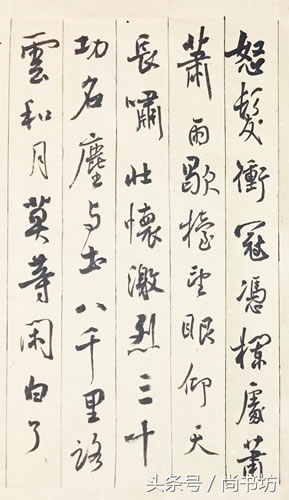 怒髮衝冠憑欄處蕭
蕭雨歇擡望眼仰天
長嘯壯懷激烈三十
功名塵与土八千里路
雲和月莫等闲白了
头条号 / 尚书坊